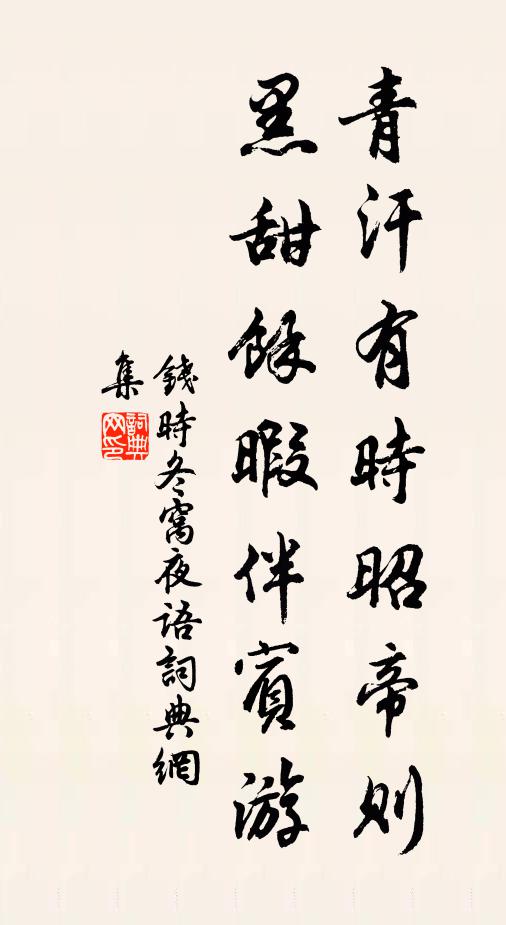 青汗有時昭帝則
黑甜餘暇伴賓游
錢時冬窩夜語詞典網
集
詞典网印